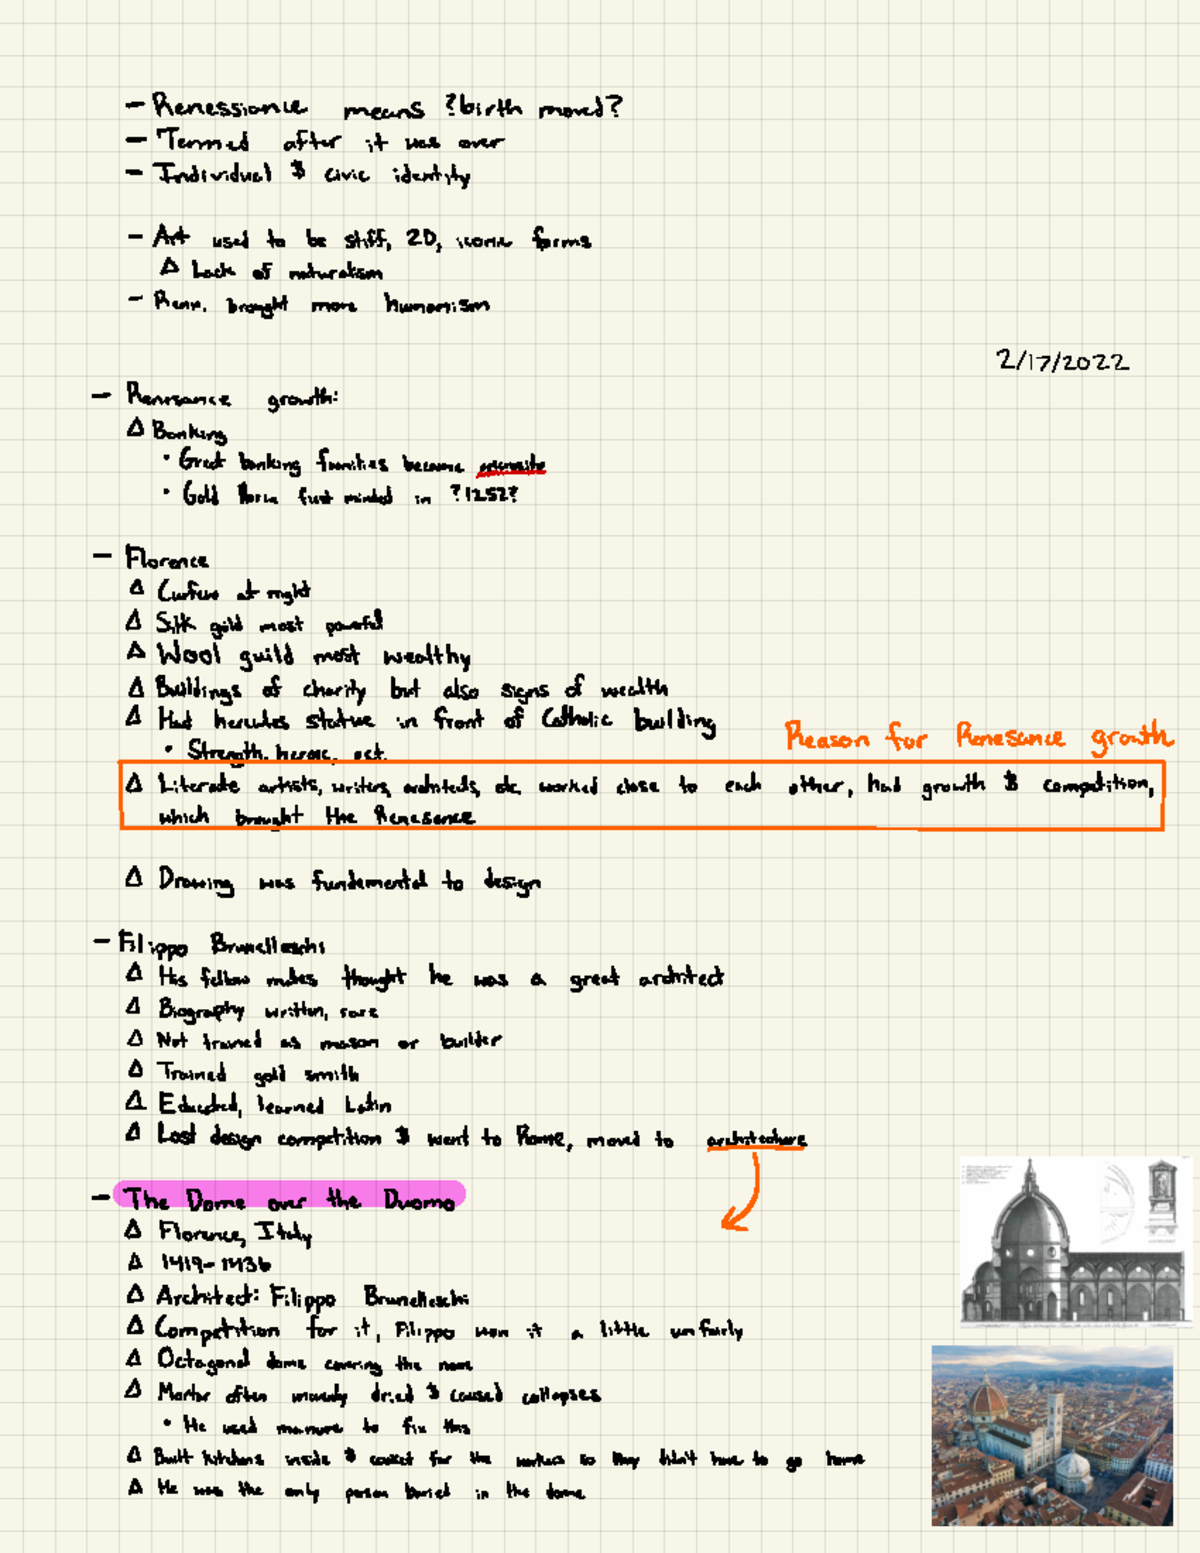 - Renessiance means ?birth moved?
- Termed after it was over
- Individual & civic identity
- Art used to be stiff, 2D, iconic forms
Δ Lack of naturalism
- Renn. brought more humanism
2/17/2022
- Renesance growth:
Δ Banking
• Great banking families became
• Gold florin first minted in ?1252?
- Florence
Δ Curfew at night
Δ Silk guild most powerful
Δ Wool guild most wealthy
Δ Buildings of charity but also signs of wealth
Δ Had hercules statue in front of Catholic building
• Strength, heroic, ect.
Reason for Renesance growth
Δ Literate artists, writers, architects, etc. worked close to each other, had growth & competition,
which brought the Renesance
Δ Drawing was fundamental to design
- Filippo Brunelleschi
Δ His fellow mates thought he was a great architect
Δ Biography written, rare
Δ Not trained as mason or builder
Δ Trained gold smith
Δ Educated, learned Latin
Δ Lost design competition & went to Rome, moved to architecture
- The Dome over the Duomo
Δ Florence, Italy
Δ 1419-1436
Δ Architect: Filippo Brunelleschi
Δ Competition for it, Filippo won it a little unfairly
Δ Octagonal dome covering the nave
Δ Mortar often dried & caused collapses
• He used manure to fix this
Δ Built kitchens inside & for the workers so they didn't have to go home
Δ He was the only person buried in the dome